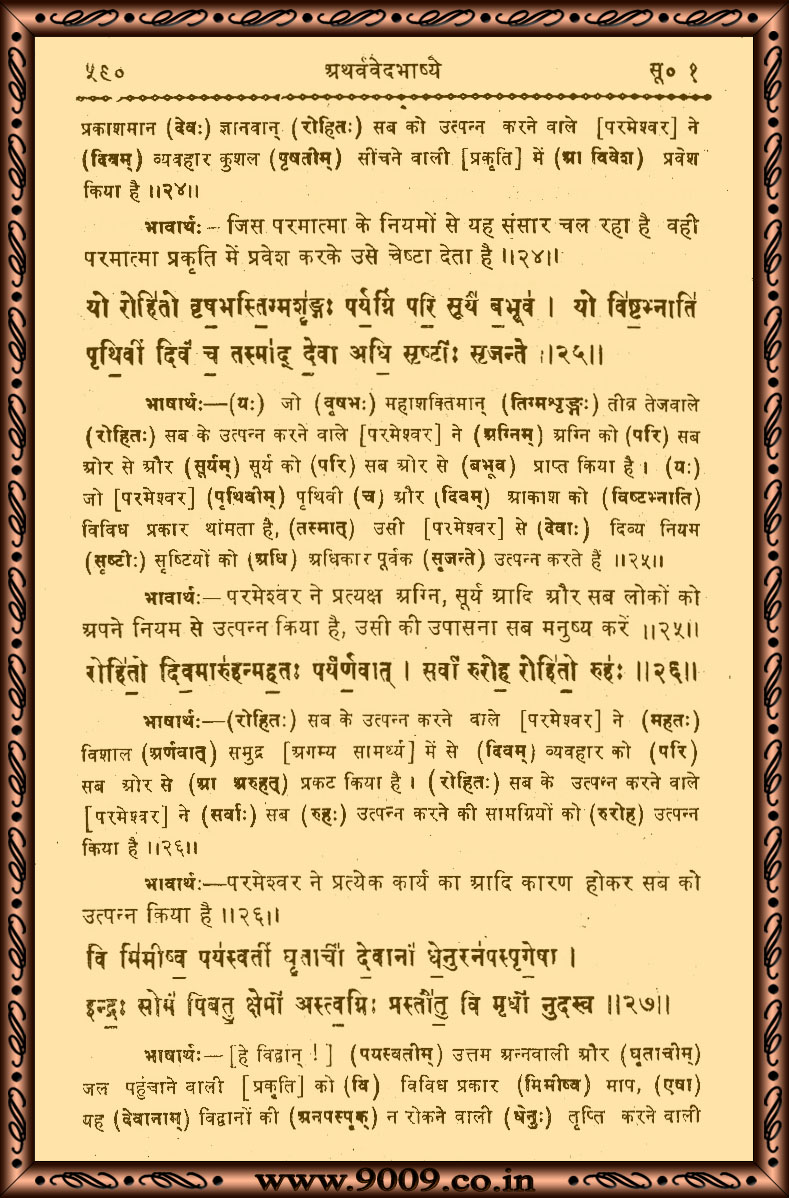 ५९० अथर्ववेदभाष्ये सू० १
प्रकाशमान (देवः) ज्ञानवान् (रोहितः) सब को उत्पन्न करने वाले [परमेश्वर] ने
(दिवम्) व्यवहार कुशल (पृषतीम्) सींचने वाली [प्रकृति] में (आ विवेश) प्रवेश
किया है ॥२४॥
भावार्थः– जिस परमात्मा के नियमों से यह संसार चल रहा है वही
परमात्मा प्रकृति में प्रवेश करके उसे चेष्टा देता है ॥२४॥
यो रोहि॑तो वृष॒भस्ति॒ग्मशृ॑ङ्गः पर्य॒ग्निं परि॒ सूर्यं॑ ब॒भूव॑ । यो वि॑ष्ट॒भ्नाति॑
पृथि॒वीं दिवं॑ च॒ तस्मा॑द् दे॒वा अधि॒ सृष्टीः॑ सृजन्ते ॥२५॥
भाषार्थः—(यः) जो (वृषभः) महाशक्तिमान् (तिग्मशृङ्गः) तीव्र तेजवाले
(रोहितः) सब के उत्पन्न करने वाले [परमेश्वर] ने (अग्निम्) अग्नि को (परि) सब
ओर से और (सूर्यम्) सूर्य को (परि) सब ओर से (बभूव) प्राप्त किया है । (यः)
जो [परमेश्वर] (पृथिवीम्) पृथिवी (च) और (दिवम्) आकाश को (विष्टभ्नाति)
विविध प्रकार थांमता है, (तस्मात्) उसी [परमेश्वर] से (देवाः) दिव्य नियम
(सृष्टीः) सृष्टियों को (अधि) अधिकार पूर्वक (सृजन्ते) उत्पन्न करते हैं ॥२५॥
भावार्थः—परमेश्वर ने प्रत्यक्ष अग्नि, सूर्य आदि और सब लोकों को
अपने नियम से उत्पन्न किया है, उसी की उपासना सब मनुष्य करें ॥२५॥
रोहि॑तो॒ दिव॒मारु॑हन्मह॒तः पर्य॑र्ण॒वात् । सर्वा॑ रुरोह॒ रोहि॑तो॒ रुहः॑ ॥२६॥
भाषार्थः—(रोहितः) सब के उत्पन्न करने वाले [परमेश्वर] ने (महतः)
विशाल (अर्णवात्) समुद्र [अगम्य सामर्थ्य] में से (दिवम्) व्यवहार को (परि)
सब ओर से (आ अरुहत्) प्रकट किया है । (रोहितः) सब के उत्पन्न करने वाले
[परमेश्वर] ने (सर्वाः) सब (रुहः) उत्पन्न करने की सामग्रियों को (रुरोह) उत्पन्न
किया है ॥२६॥
भावार्थः—परमेश्वर ने प्रत्येक कार्य का आदि कारण होकर सब को
उत्पन्न किया है ॥२६॥
वि मि॑मीष्व॒ पय॑स्वतीं घृ॒ताचीं॑ दे॒वानां॑ धे॒नुरन॑पस्पृगे॒षा ।
इन्द्रः॒ सोमं॑ पिबतु॒ क्षेमो॑ अस्त्व॒ग्निः प्रस्तौ॑तु॒ वि मृधो॑ नुदस्व ॥२७॥
भाषार्थः—[हे विद्वान् !] (पयस्वतीम्) उत्तम अन्नवाली और (घृताचीम्)
जल पहुंचाने वाली [प्रकृति] को (वि) विविध प्रकार (मिमीष्व) माप, (एषा)
यह (देवानाम्) विद्वानों की (अनपस्पृक्) न रोकने वाली (धेनुः) तृप्ति करने वाली
www.9009.co.in